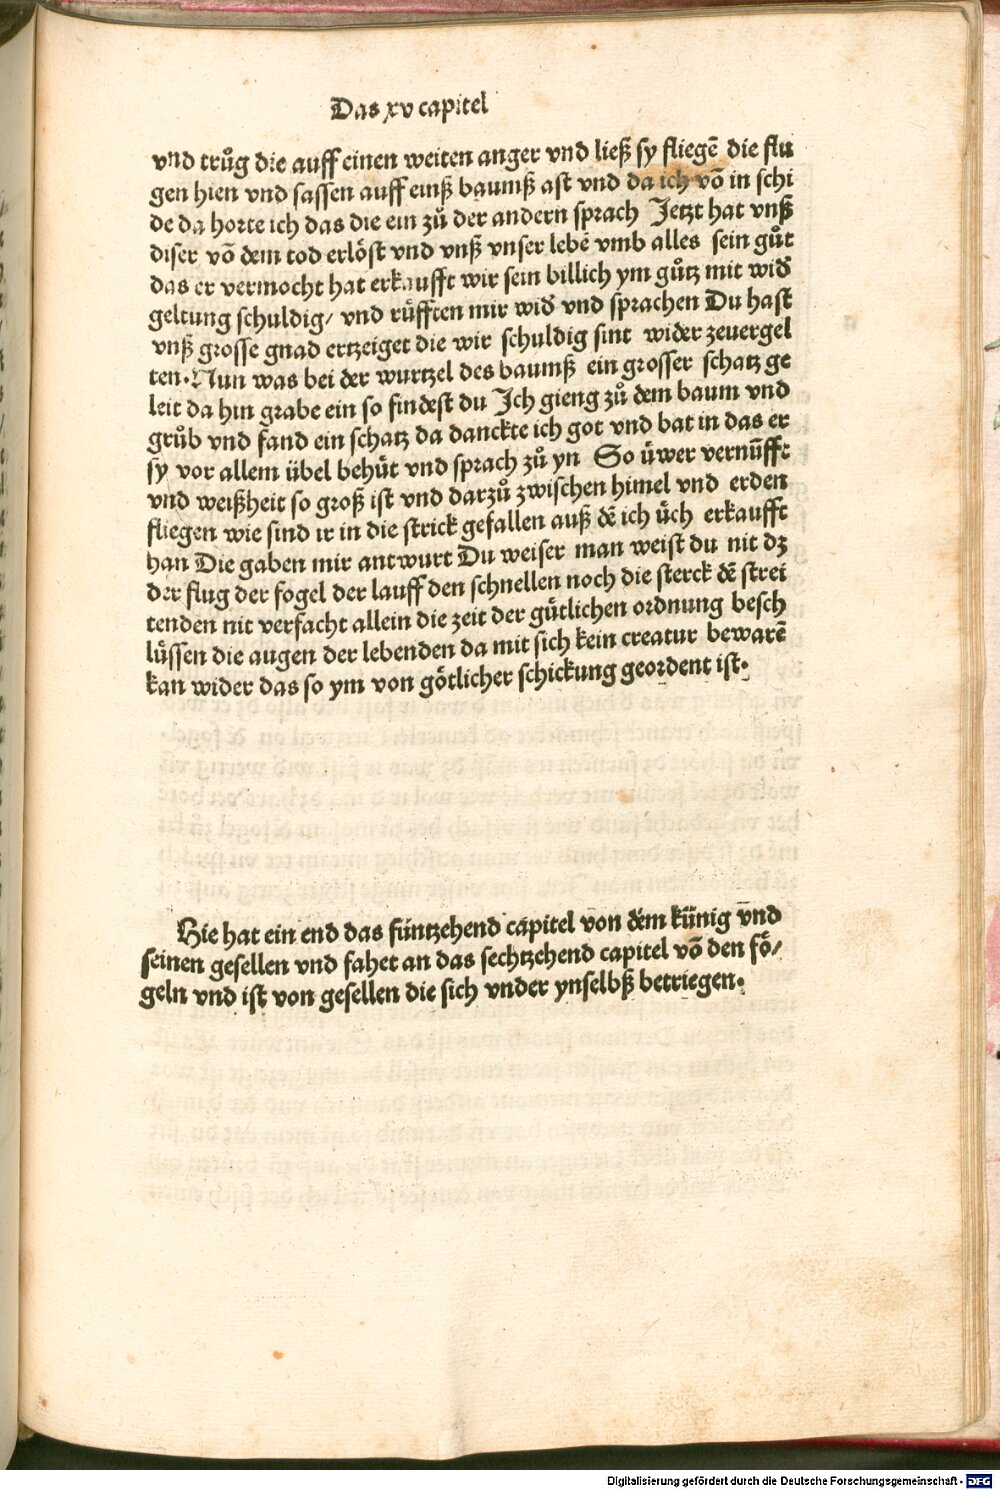 Das xv capitel
vnd trůg die auff einen weiten anger vnd ließ sy fliegē die flu
gen hien vnd sassen auff einß baumß ast vnd da ich vō in schi
de da horte ich das die ein zů der andern sprach Jetzt hat vnß
diser vō dem tod erlöst vnd vnß vnser lebē vmb alles sein gůt
das er vermocht hat erkaufft wir sein billich ym gůtz mit wid̕
geltung schuldig/ vnd rüfften mir wid̕ vnd sprachen Du hast
vnß grosse gnad ertzeiget die wir schuldig sint wider zeuergel
ten. Nun was bei der wurtzel des baumß ein grosser schatz ge
leit da hin grabe ein so findest du Ich gieng zů dem baum vnd
grůb vnd fand ein schatz da danckte ich got vnd bat in das er
sy vor allem übel behüt vnd sprach zů yn So üwer vernūfft
vnd weißheit so groß ist vnd darzů zwischen himel vnd erden
fliegen wie sind ir in die strick gefallen auß dē ich üch erkaufft
han Die gaben mir antwurt Du weiser man weist du nit dz
der flug der fogel der lauff den schnellen noch die sterck dē strei
tenden nit verfacht allein die zeit der gütlichen ordnung besch
lüssen die augen der lebenden da mit sich kein creatur bewarē
kan wider das so ym von götlicher schickung geordent ist.
Hie hat ein end das füntzehend capitel von dem künig vnd
seinen gesellen vnd fahet an das sechtzehend capitel vō den fö/
geln vnd ist von gesellen die sich vnder ynselbß betriegen.
Digitalisierung gefördert durch die Deutsche Forschungsgemeinschaft - DFG